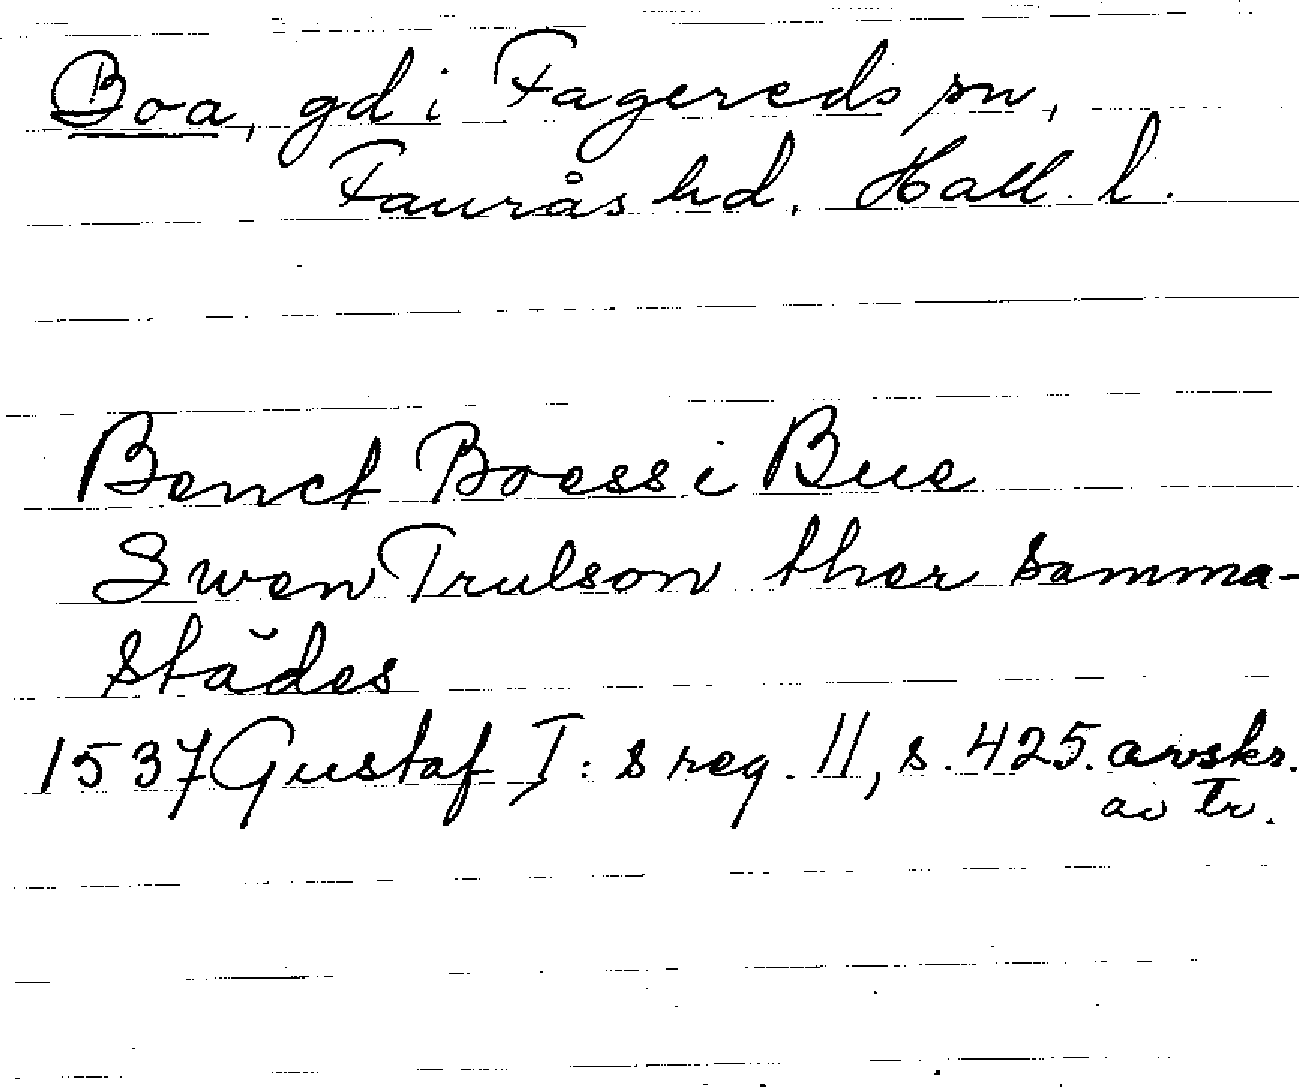 Boa, gd i Fagereds sn,
Faurås hd. Hall. l.
Benct Boess i Bue
Swen Trulson ther samma-
städes
1537 Gustaf I:s reg. 11, s. 425. avskr.
av tr.